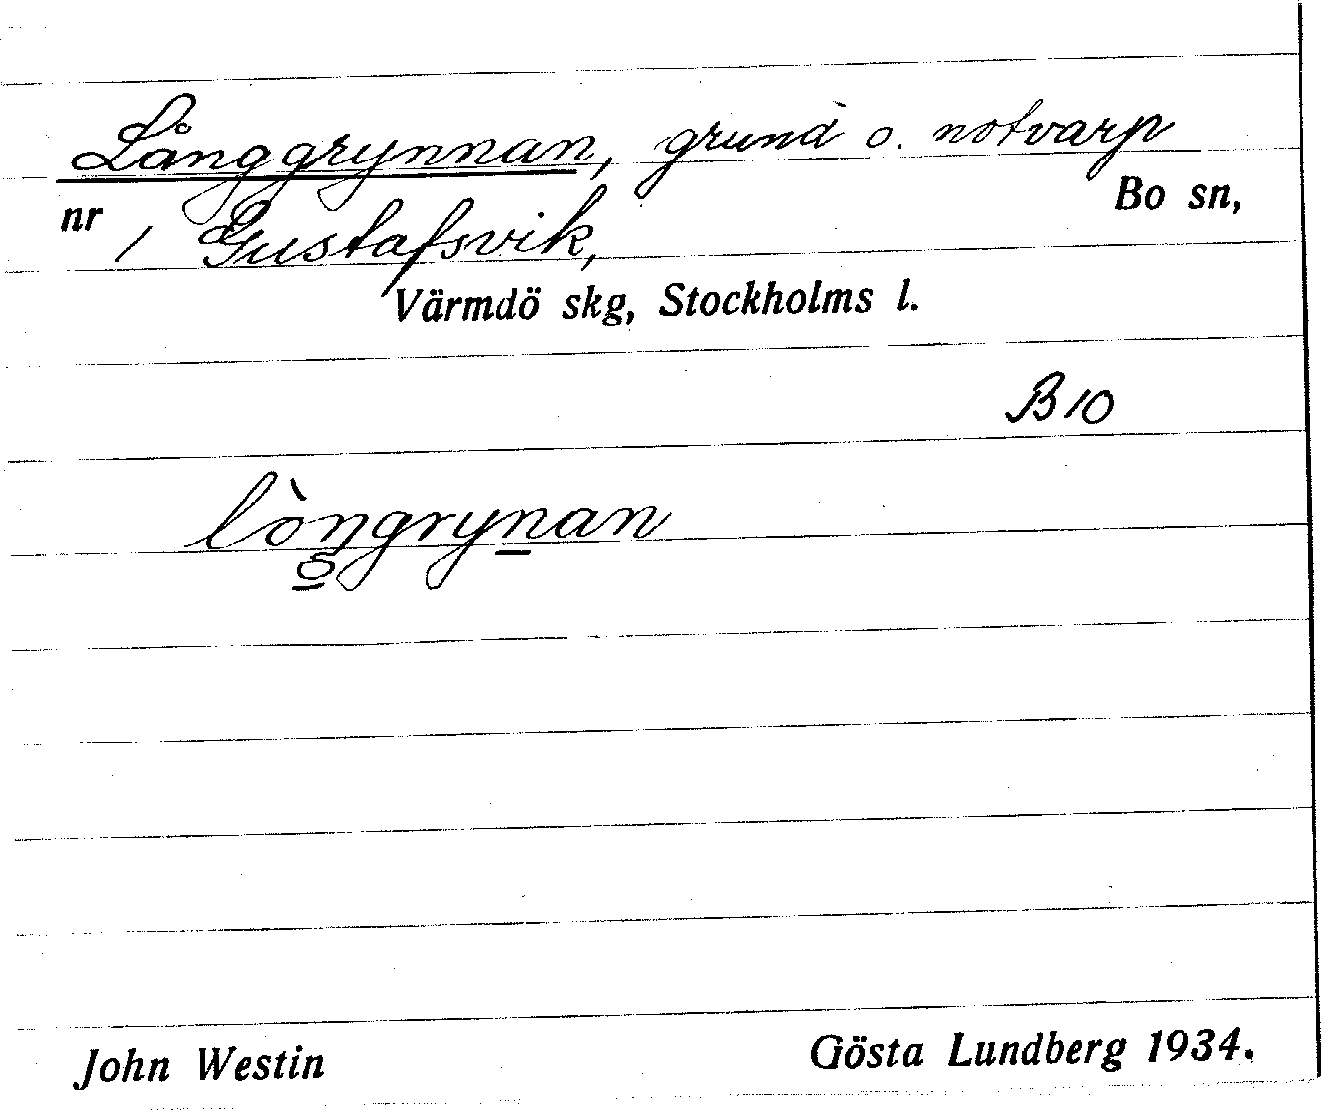 Långgrynnan, grund o. notvarp
nr 1 Gustafsvik, Bo sn,
Värmdö skg, Stockholms l.
B 10
lòngrynan
John Westin Gösta Lundberg 1934.